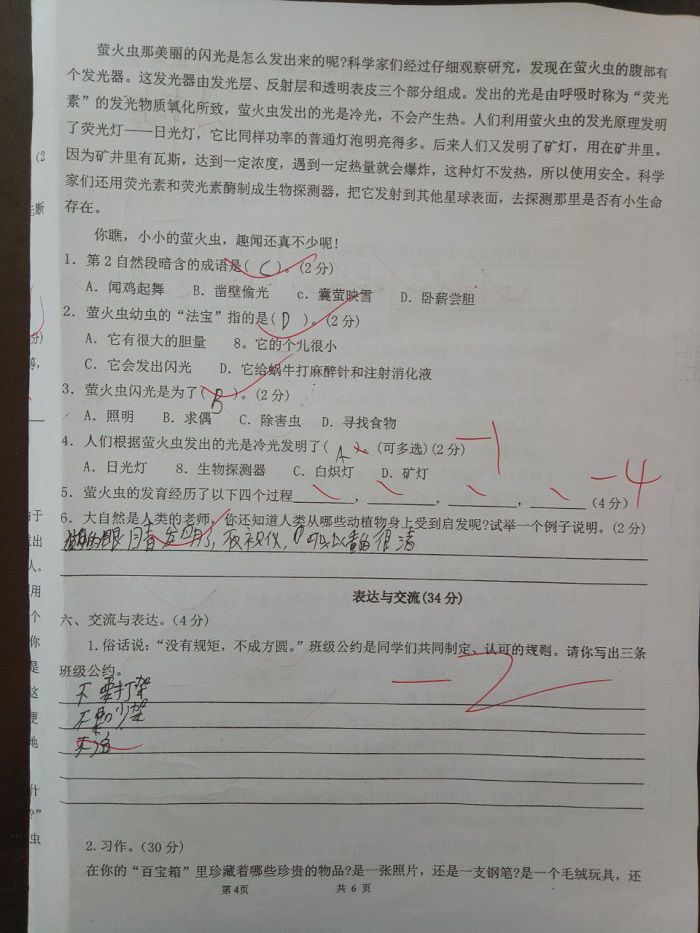 萤火虫那美丽的闪光是怎么发出来的呢?科学家们经过仔细观察研究，发现在萤火虫的腹部有
个发光器。这发光器由发光层、反射层和透明表皮三个部分组成。发出的光是由呼吸时称为“荧光
素”的发光物质氧化所致，萤火虫发出的光是冷光，不会产生热。人们利用萤火虫的发光原理发明
了荧光灯——日光灯，它比同样功率的普通灯泡明亮得多。后来人们又发明了矿灯，用在矿井里。
因为矿井里有瓦斯，达到一定浓度，遇到一定热量就会爆炸，这种灯不发热，所以使用安全。科学
家们还用荧光素和荧光素酶制成生物探测器，把它发射到其他星球表面，去探测那里是否有小生命
存在。
你瞧，小小的萤火虫，趣闻还真不少呢!
1. 第2自然段暗含的成语是( C )。(2分)
A. 闻鸡起舞 B. 凿壁偷光 c. 囊萤映雪 D. 卧薪尝胆
2. 萤火虫幼虫的“法宝”指的是( D )。(2分)
A. 它有很大的胆量 8。它的个儿很小
C. 它会发出闪光 D. 它给蜗牛打麻醉针和注射消化液
3. 萤火虫闪光是为了( B )。(2分)
A. 照明 B. 求偶 C. 除害虫 D. 寻找食物
4. 人们根据萤火虫发出的光是冷光发明了( A (可多选)(2分) -1
A. 日光灯 8. 生物探测器 C. 白炽灯 D. 矿灯
5. 萤火虫的发育经历了以下四个过程______，______，______，______ (4分) -4
6. 大自然是人类的老师，你还知道人类从哪些动植物身上受到启发呢?试举一个例子说明。(2分)
的眼睛发明了夜视仪，可以看的很清
表达与交流(34分)
六、交流与表达。(4分)
1. 俗话说：“没有规矩，不成方圆。”班级公约是同学们共同制定、认可的规则。请你写出三条
班级公约。 -2
不要打架
不要吵架
不
2. 习作。(30分)
在你的“百宝箱”里珍藏着哪些珍贵的物品?是一张照片，还是一支钢笔?是一个毛绒玩具，还
第4页 共 6 页